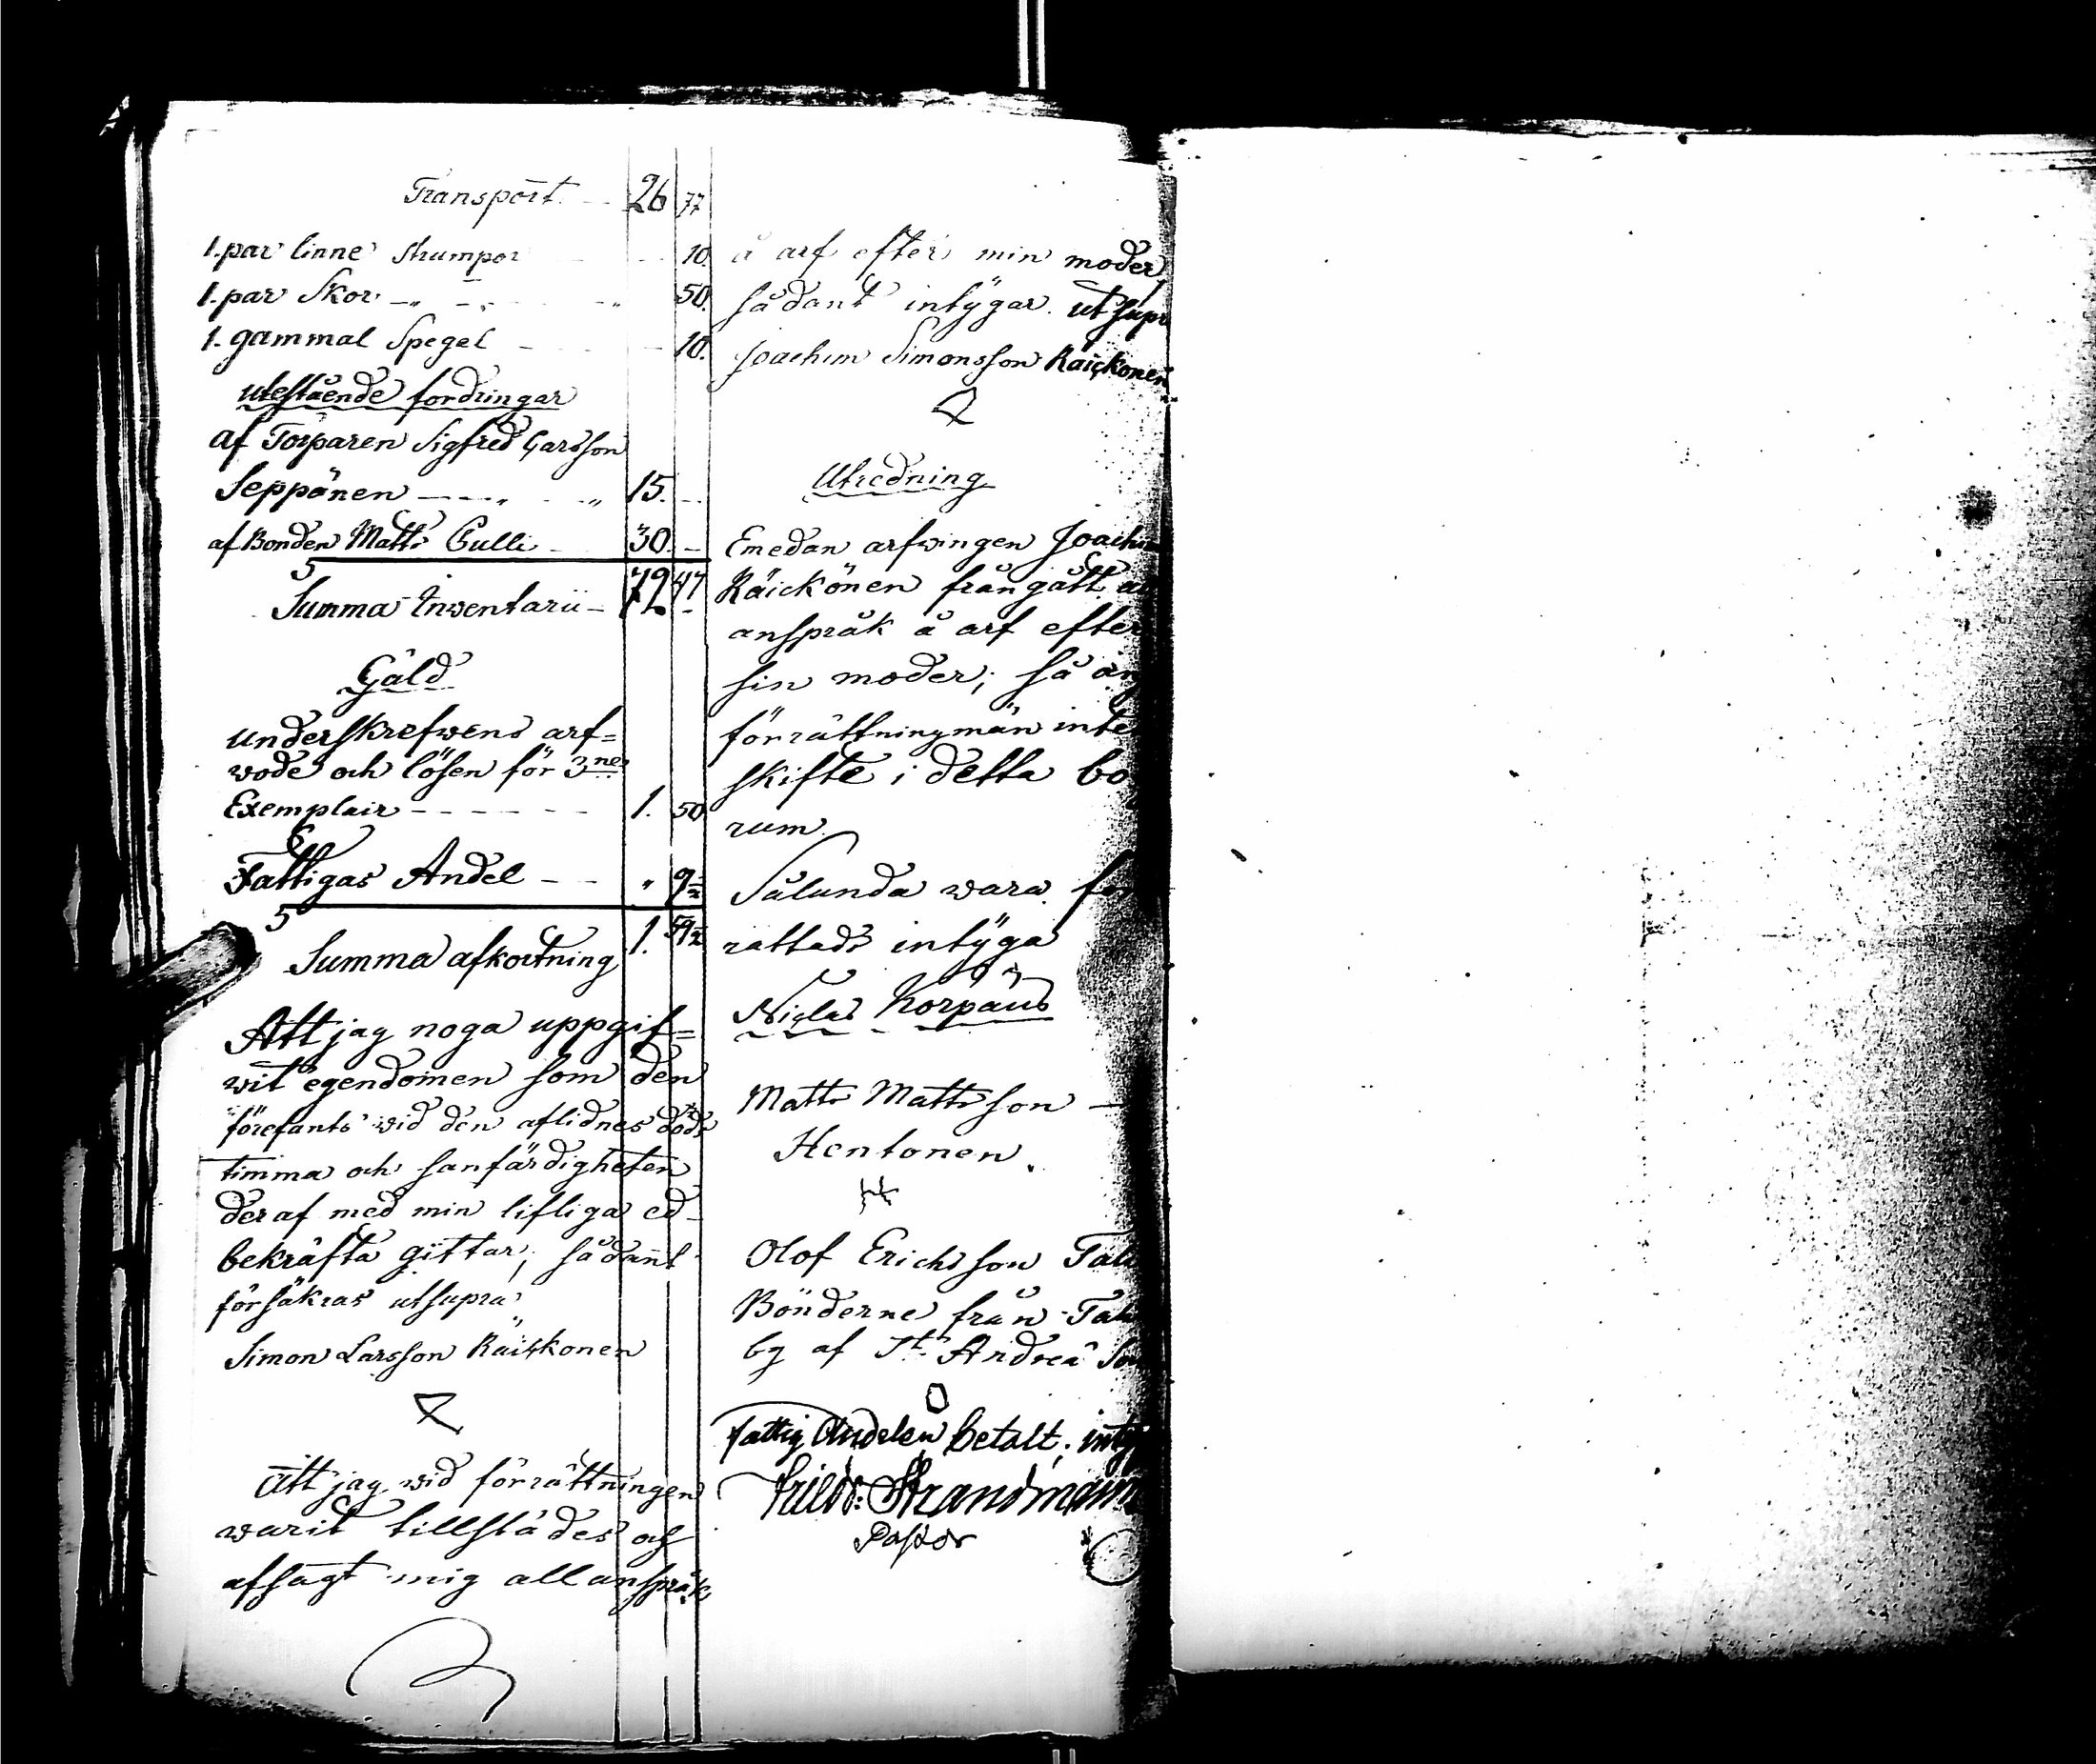 Transport. — 26 77
1. par linne strumpor — 10.
1. par Skor — „ — „ 50.
1. gammal Spegel — 10.
utestående fordringar
af Torparen Sigfred Larsson
Seppönen — — „ „ 15. —
af Bonden Matts Pulli — 30. —
Summa Inventarii — 72 47
Gäld
underskrefwens arf=
wode och lösen för 3ne
Exemplair — — — 1. 50
Fattigas Andel — — „ 9½
Summa afkortning 1. 59½
Att jag noga uppgif=
wit egendomen som den
förefants vid den aflidnes döds
timma och sanfärdigheten
deraf med min lifliga ed
bekräfta gittar, sådant
försäkras utsupra
Simon Larsson Räickonen
Att jag wid förrättningen
warit tillstädes och
afsagt mig all anspråk
å arf efter min moder,
sådant intygar. ut supra
Joachim Simonsson Räickonen
Utredning
Emedan arfwingen Joachim
Räickönen frångått
anspråk å arf efter
sin moder; så
förrättningmän inte
skifte i detta bo
rum.
Sålunda wara
rättads intyga
Niclas Korpäus
Matts Mattsson —
Hentonen.
Olof Erichsson
Bönderne från
by af St. Andreä
fattig Andelen betalt, intyg
Friedr: Strandmann
Pastor